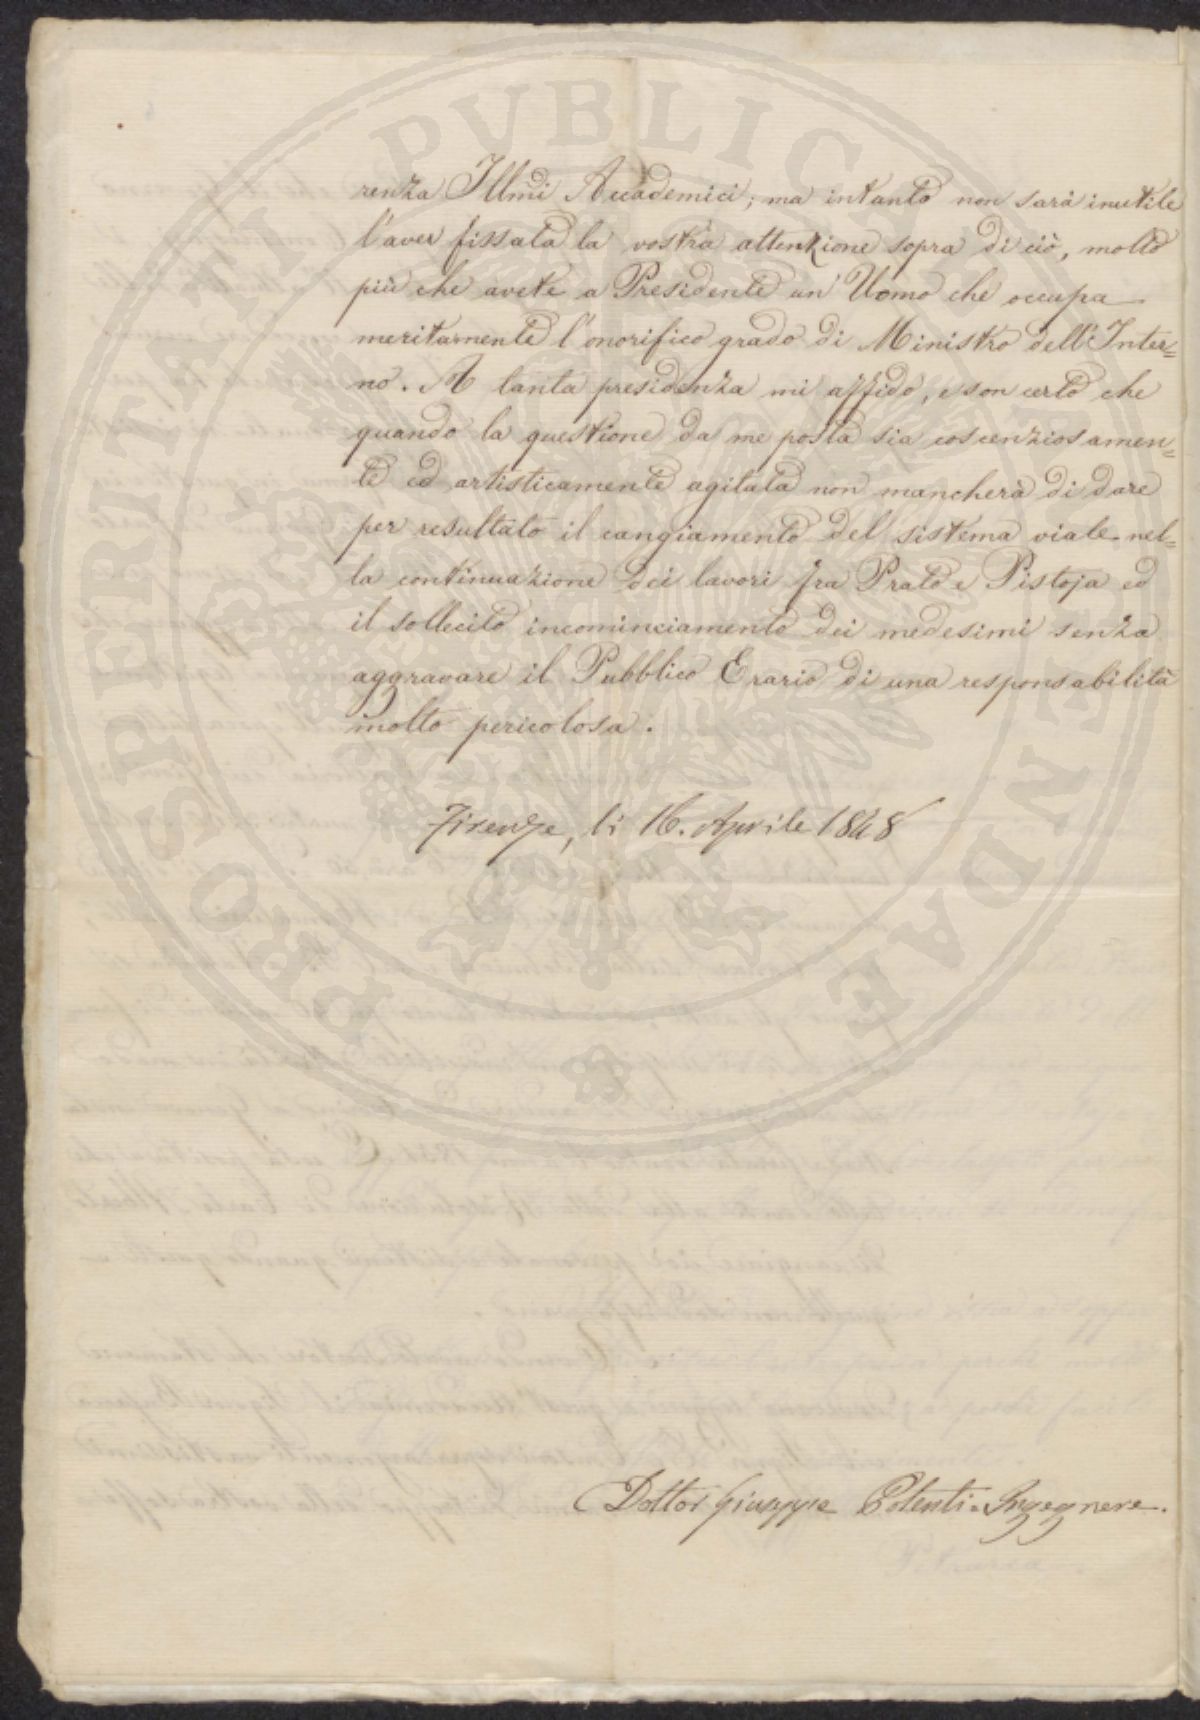 renza Illmi Accademici; ma intanto non sarà inutile
l'aver fissata la vostra attenzione sopra di ciò, molto
più che avete a Presidente un' Uomo che occupa
meritamente l'onorifico grado di Ministro dell'Inter=
no. A tanta presidenza mi affido, e son certo che
quando la questione da me posta sia coscenziosamen=
te ed artisticamente agitata non mancherà di dare
per resultato il cangiamento del sistema viale nel=
la continuazione dei lavori fra Prato e Pistoja ed
il sollecito incominciamento dei medesimi senza
aggravare il Pubblico Erario di una responsabilità
molto pericolosa.
Firenze, li 16. Aprile 1848
Dottor Giuseppe Potenti Ingegnere.
PROSPERITATI PVBLICAE AVGENDAE